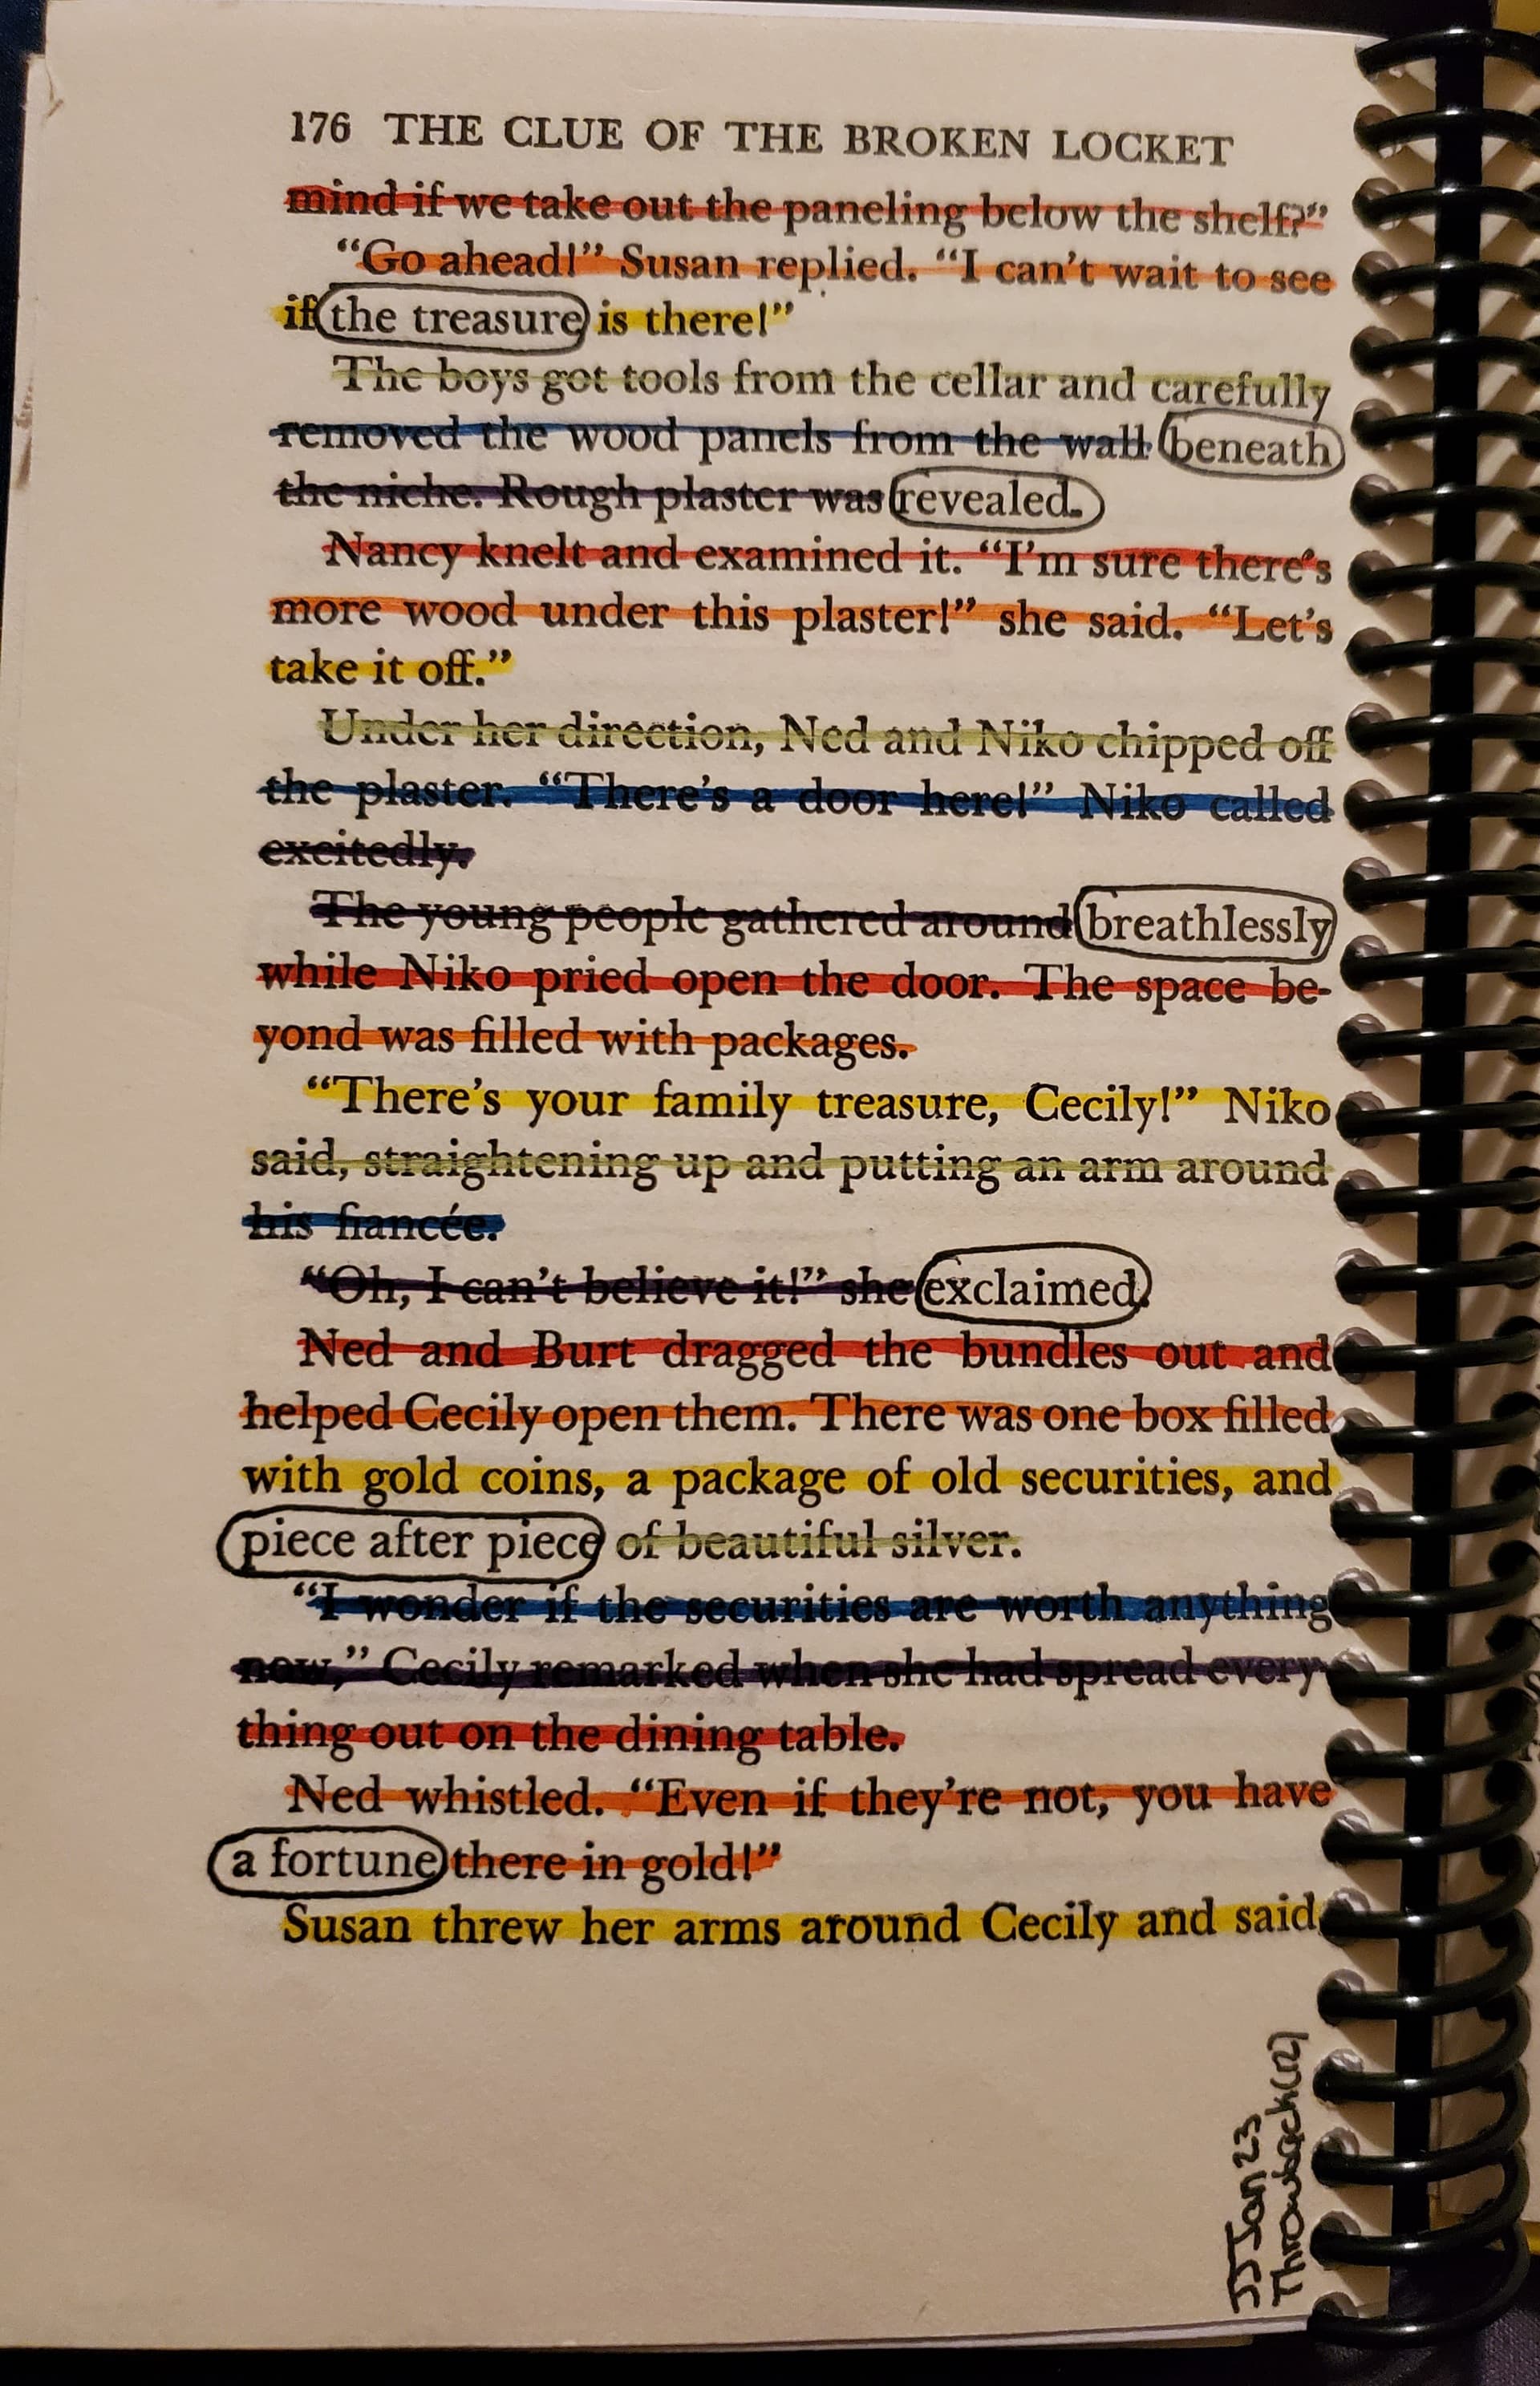 176 THE CLUE OF THE BROKEN LOCKET
mind if we take out the paneling below the shelf?”
“Go ahead!” Susan replied. “I can’t wait to see
if the treasure is there!”
The boys got tools from the cellar and carefully
removed the wood panels from the wall beneath
the niche. Rough plaster was revealed.
Nancy knelt and examined it. “I’m sure there’s
more wood under this plaster!” she said. “Let’s
take it off.”
Under her direction, Ned and Niko chipped off
the plaster. “There’s a door here!” Niko called
excitedly.
The young people gathered around breathlessly
while Niko pried open the door. The space be-
yond was filled with packages.
“There’s your family treasure, Cecily!” Niko
said, straightening up and putting an arm around
his fiancée.
“Oh, I can’t believe it!” she exclaimed.
Ned and Burt dragged the bundles out and
helped Cecily open them. There was one box filled
with gold coins, a package of old securities, and
piece after piece of beautiful silver.
“I wonder if the securities are worth anything
now,” Cecily remarked when she had spread every-
thing out on the dining table.
Ned whistled. “Even if they’re not, you have
a fortune there in gold!”
Susan threw her arms around Cecily and said,
JJ Jan 23
Throwback (12)